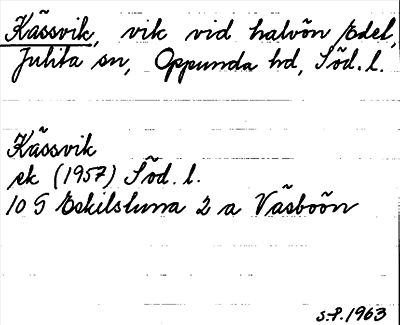 Kässvik, vik vid halvön Edel,
Julita sn, Oppunda hd, Söd. l.
Kässvik
ek (1957) Söd. l.
10 G Eskilstuna 2 a Väsboön
S.P. 1963